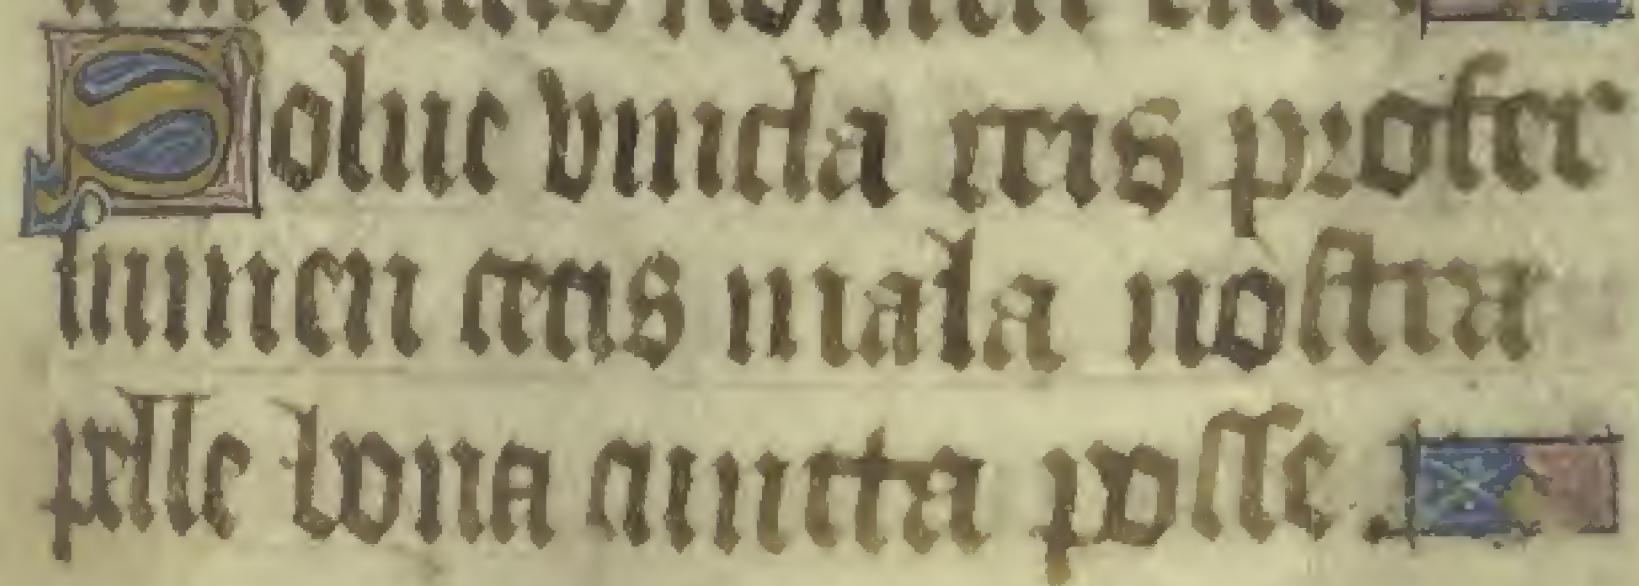 Solue vincla reis profer
lumen cecis mala nostra
pelle bona cuncta posse .